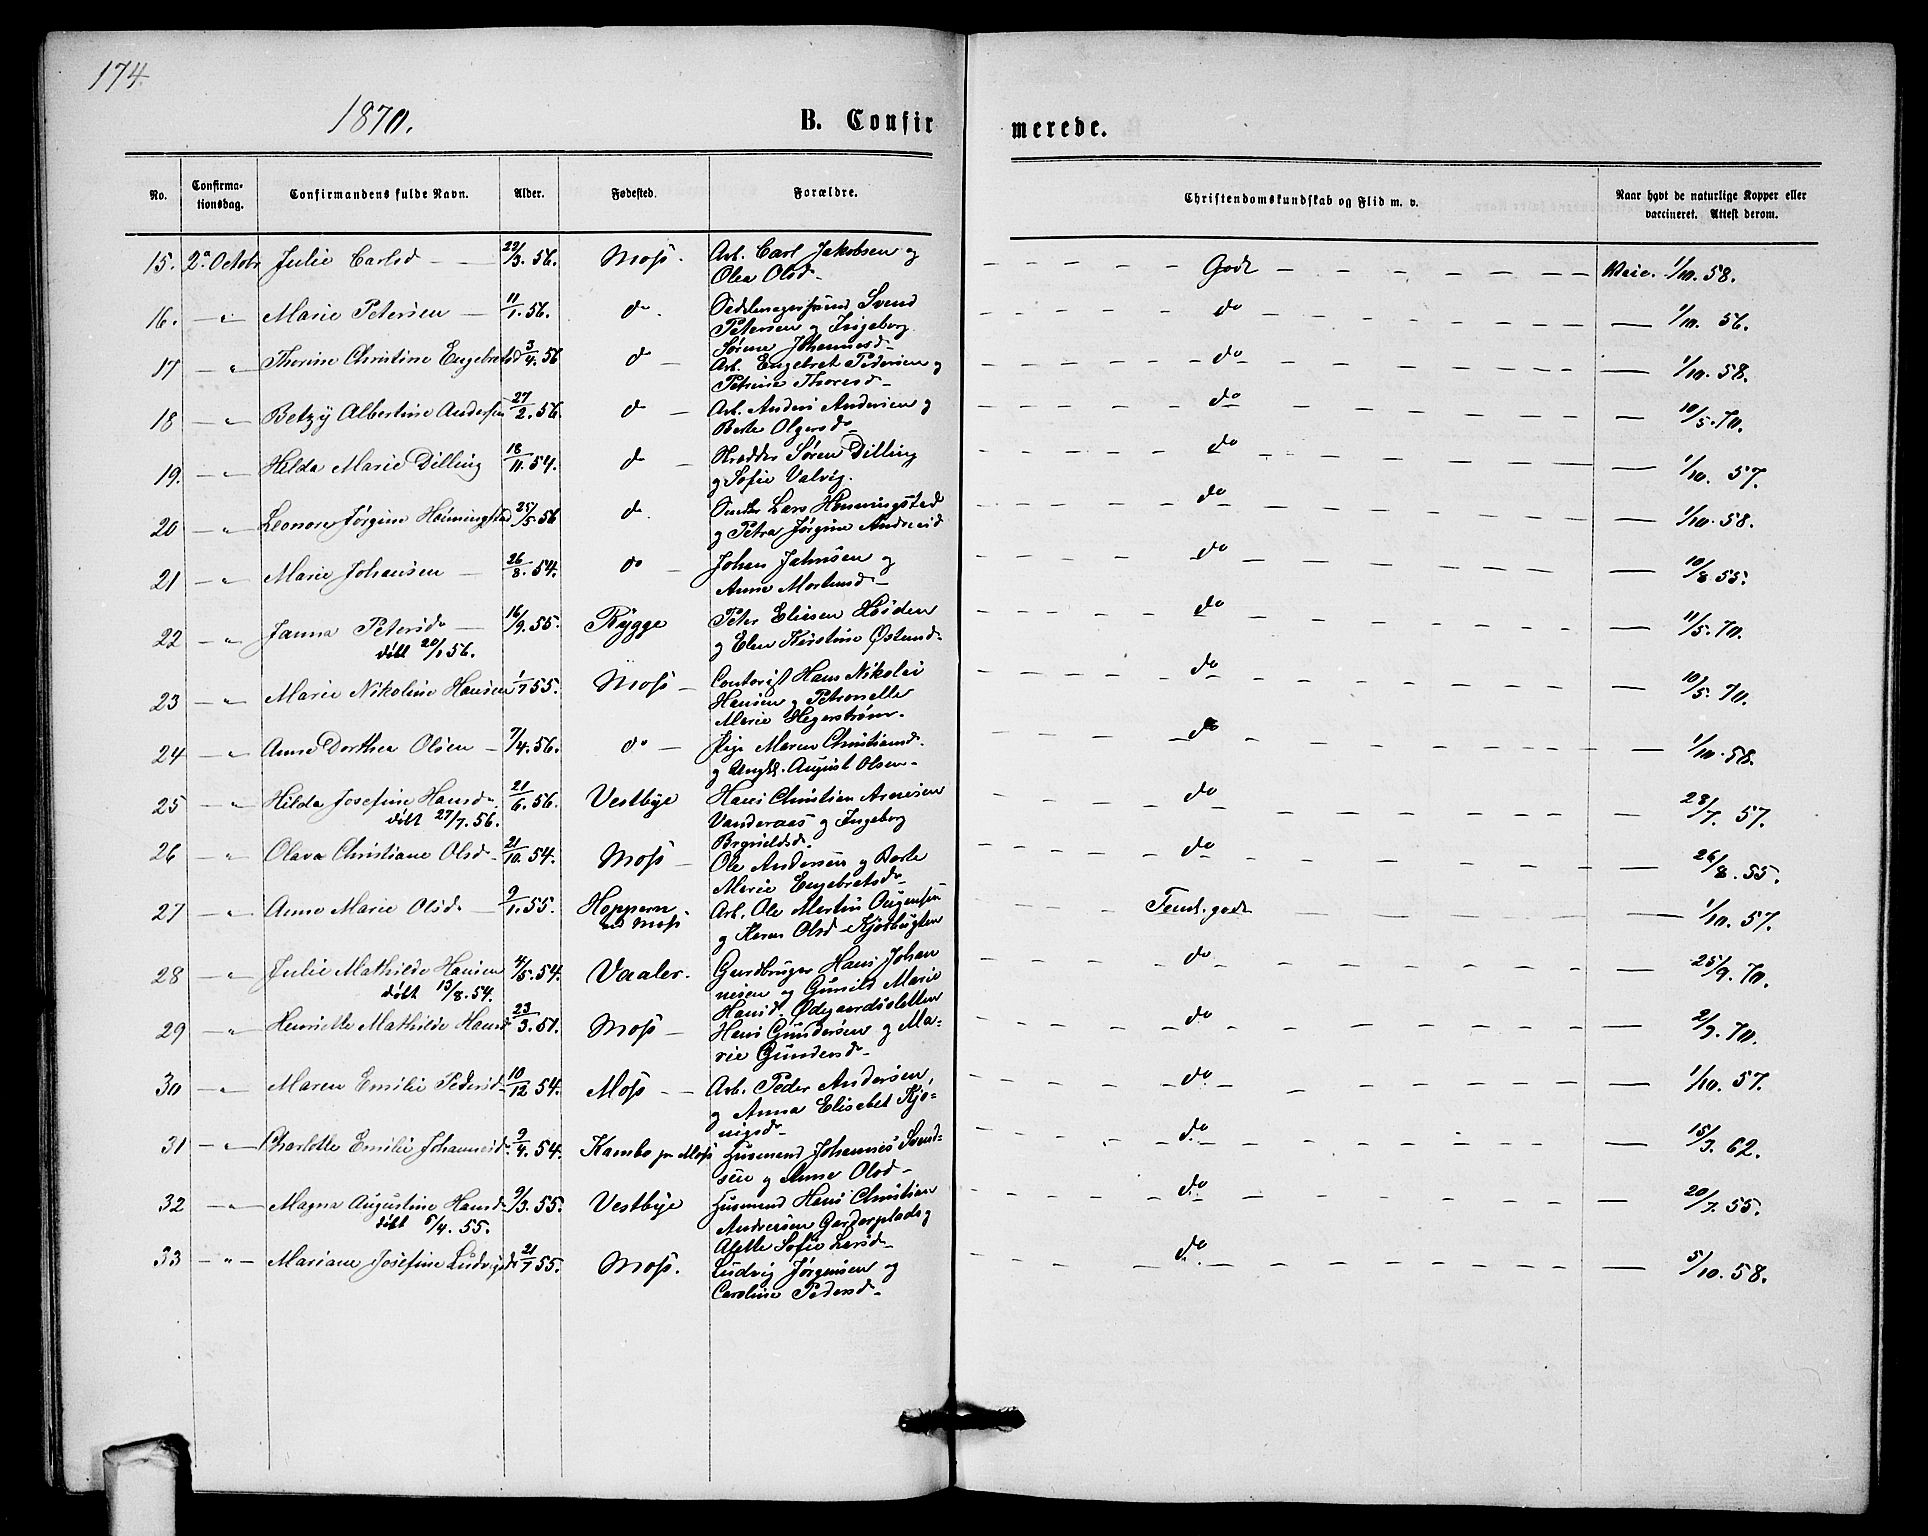 174.
1870.
B. Confirmerede.
No. Confirmationsdag. Confirmandens fulde Navn. Alder. Fødested. Forældre. Christendomskundskab og Flid m. v. Naar havt de naturlige Kopper eller vaccineret. Attest derom.
15. 2n Octobr Julie Carlsd — 29/3. 56. Moss. Arb. Carl Jakobsen og Olea Olsd. Godt 1/10. 58.
16. — " Marie Petersen — 11/1. 56. do. Svend Petersen og Ingeborg Sørine Johannesd. do — 1/10. 56.
17 — " Thorine Christine Engebretsd 3/4. 56 do — Arb. Engebret Pedersen og Petrine Thoresd. do — 1/10. 58.
18 — " Betzy Albertine Andersen 27/2. 56. do — Arb. Anders Andersen og Berte Olgersd. do — 10/5. 70.
19. — " Hilda Marie Dilling 18/11. 54. do — Skrædder Søren Dilling og Sofie Valvig. do — 1/10. 57.
20 — " Leonore Jørgine Henningstad 25/5. 56 do. Lars Henningstad og Petra Jørgine Andreasd do — 1/10. 58.
21 — " Marie Johansen — 26/8. 54. do — Johan Jahnsen og Anne Mortensd. do — 10/8 55.
22 — " Janna Petersd. — 16/9. 55. Rygge Peter Eliesen Høiden og Elen Kirstine Østensd. do — 11/5. 70.
døbt 20/1 56.
23 — " Marie Nikoline Hansen 1/7 55. Moss — Contorist Hans Nikolai Hansen og Petronelle Marie Hegerstrøm. do — 10/5. 70.
24 — " Anne Dorthea Olsen — 7/4. 56. do — Pige Maren Christiansd. og Ungk. August Olsen. do — 1/10. 58.
25 — " Hilda Josefine Hansd. 21/6. 56. Vestbye Hans Christian Arnesen Vanderaas og Ingeborg Brynildsd. do — 28/7. 57.
døbt 27/7. 56.
26 — " Olava Christiane Olsd. 21/10. 54. Moss — Ole Andersen og Berte Marie Engebretsd. do — 26/8. 55.
27 — " Anne Marie Olsd. — 9/1. 55. Hoppern ved Moss Arb. Ole Martin Ougensen og Karen Olsd. Kjosbugten Teml. godt — 1/10. 57.
28 — " Julie Mathilde Hansen 4/5. 54. Vaaler. Gaardbruger Hans Johannesen og Gunild Marie Hansd. Ødegaardssletten do — 25/9. 70.
døbt 13/8. 54.
29 — " Henriette Mathilde Hansd 23/3. 51. Moss — Hans Gundersen og Marie Gundersd. do — 2/9. 70.
30 — " Maren Emilie Pedersd. 10/12 54. Moss — Arb. Peder Andersen, og Anna Elisabet Kjønigsd. do — 1/10. 57.
31 — " Charlotte Emilie Johannesd. 9/4. 54. Kambo pr Moss Husmand Johannes Svendsen og Anne Olsd. do — 15/3. 62.
32 — " Magna Augustine Hansd. 9/3. 55. Vestbye Husmand Hans Christian Andersen Garderplads og Alette Sofie Larsd. do — 20/7. 55.
døbt 5/4. 55.
33 — " — Mariane Josefine Ludvigsd 21/7 55. Moss. Ludvig Jørgensen og Caroline Pedersd. do — 5/10. 58.